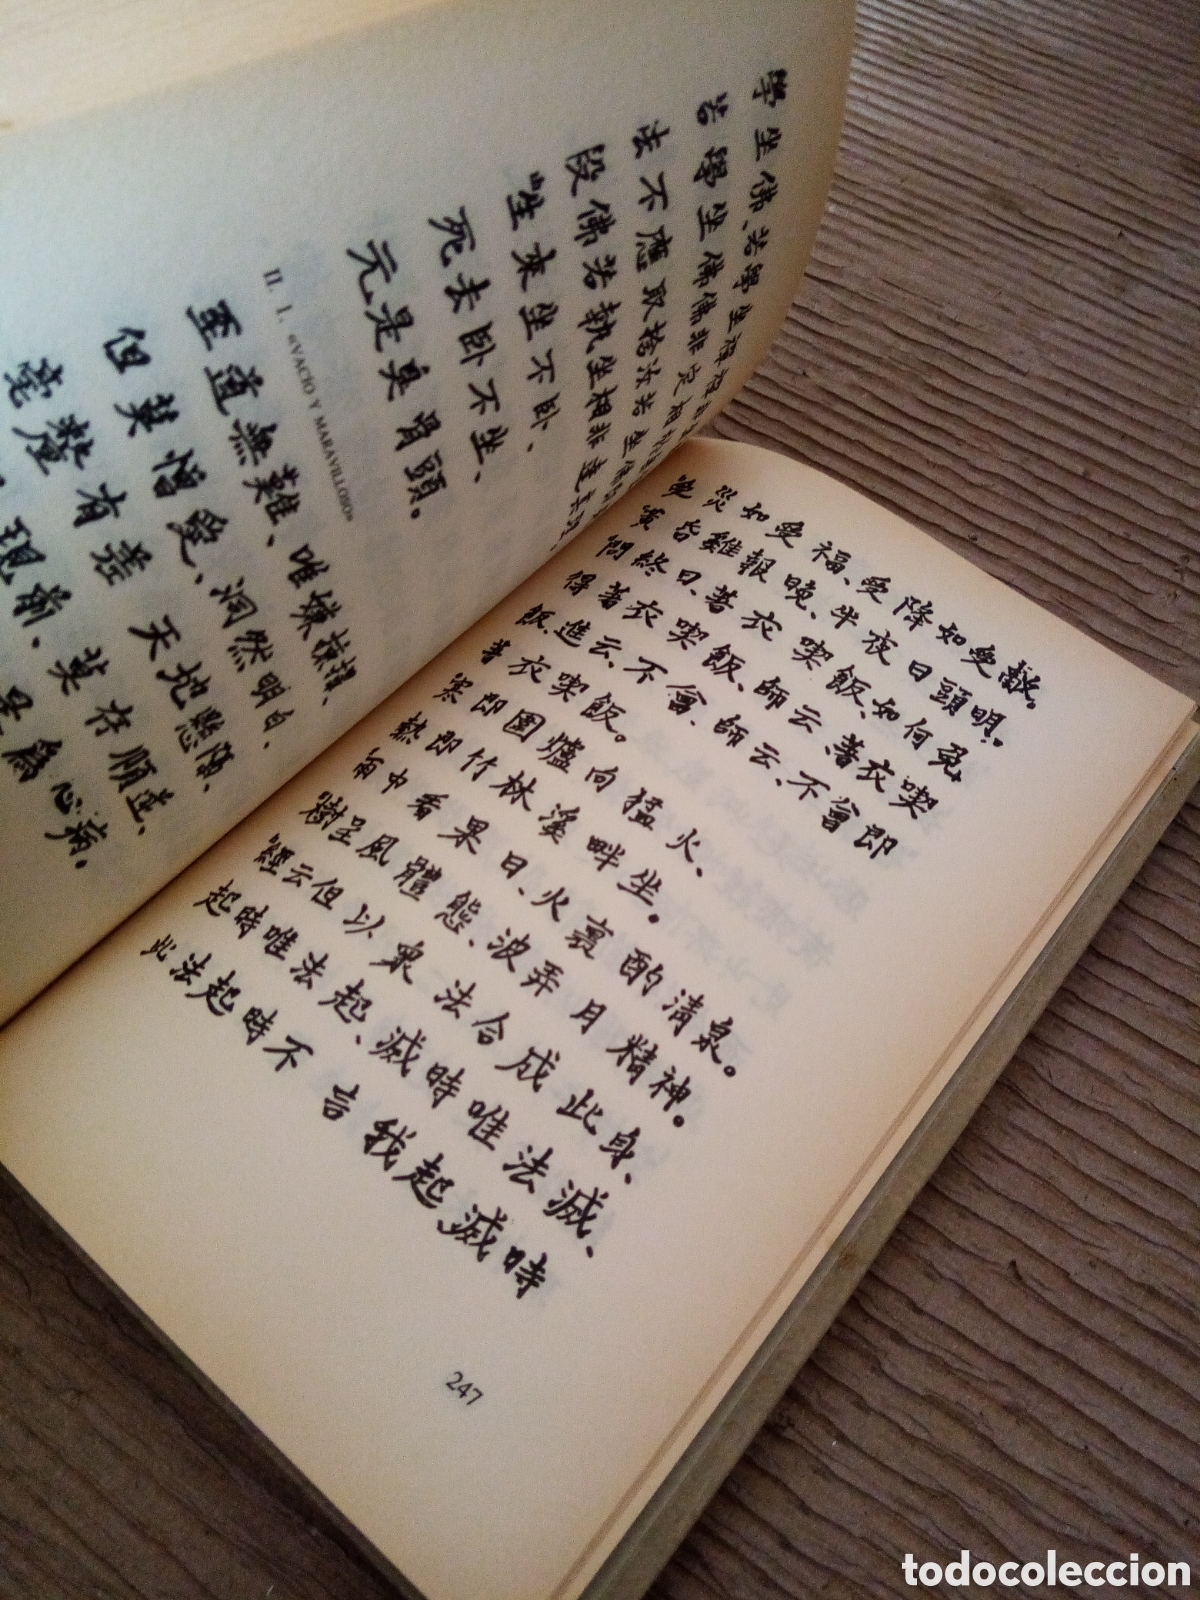 學坐佛、若學坐禪禪
若學坐佛佛非定相
法不應取捨汝若坐佛
段佛若執坐相非達其理
生來坐不臥、
死去臥不坐、
元是臭骨頭。
II. 1. «VACÍO Y MARAVILLOSO»
至道無難、唯嫌揀擇、
但莫憎愛、洞然明白、
毫釐有差 天地懸隔、
現前、莫存順逆、
為心病。
受災如受福、受降如受敵。
寅皆雞報曉、半夜日頭明。
問終日、著衣喫飯、如何免
得著衣喫飯、師云、著衣喫
飯、進云、不會、師云、不會即
著衣喫飯。
寒即圍爐向猛火、
熱即竹林溪畔坐。
雨中看果日、火裏酌清泉。
樹呈風體態、波弄月精神。
經云但以衆法合成此身、
起時唯法起、滅時唯法滅、
此法起時不言我起、滅時
247
todocoleccion